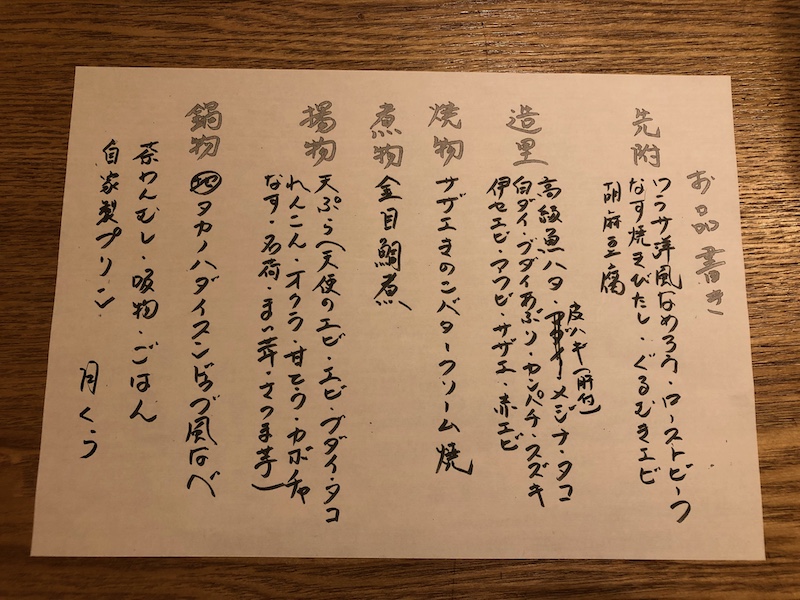 お品書き
先附
ワラサ洋風なめろう・ローストビーフ
なす焼きびたし・ぐるむきエビ
胡麻豆腐
造里
高級魚ハタ・皮ハギ(肝付)メジナ・タコ
白ダイ・ブダイあぶり・カンパチ・スズキ
伊セエビ・アワビ・サザエ・赤エビ
焼物
サザエきのこバタークリーム焼
煮物
金目鯛煮
揚物
天ぷら(天使のエビ・エビ・ブダイ・タコ
れんこん・オクラ・甘とう・カボチャ
なす・名荷・まい茸・さつま芋)
鍋物
タカノハダイスンドゥブ風なべ
茶わんむし・吸物・ごはん
自家製プリン